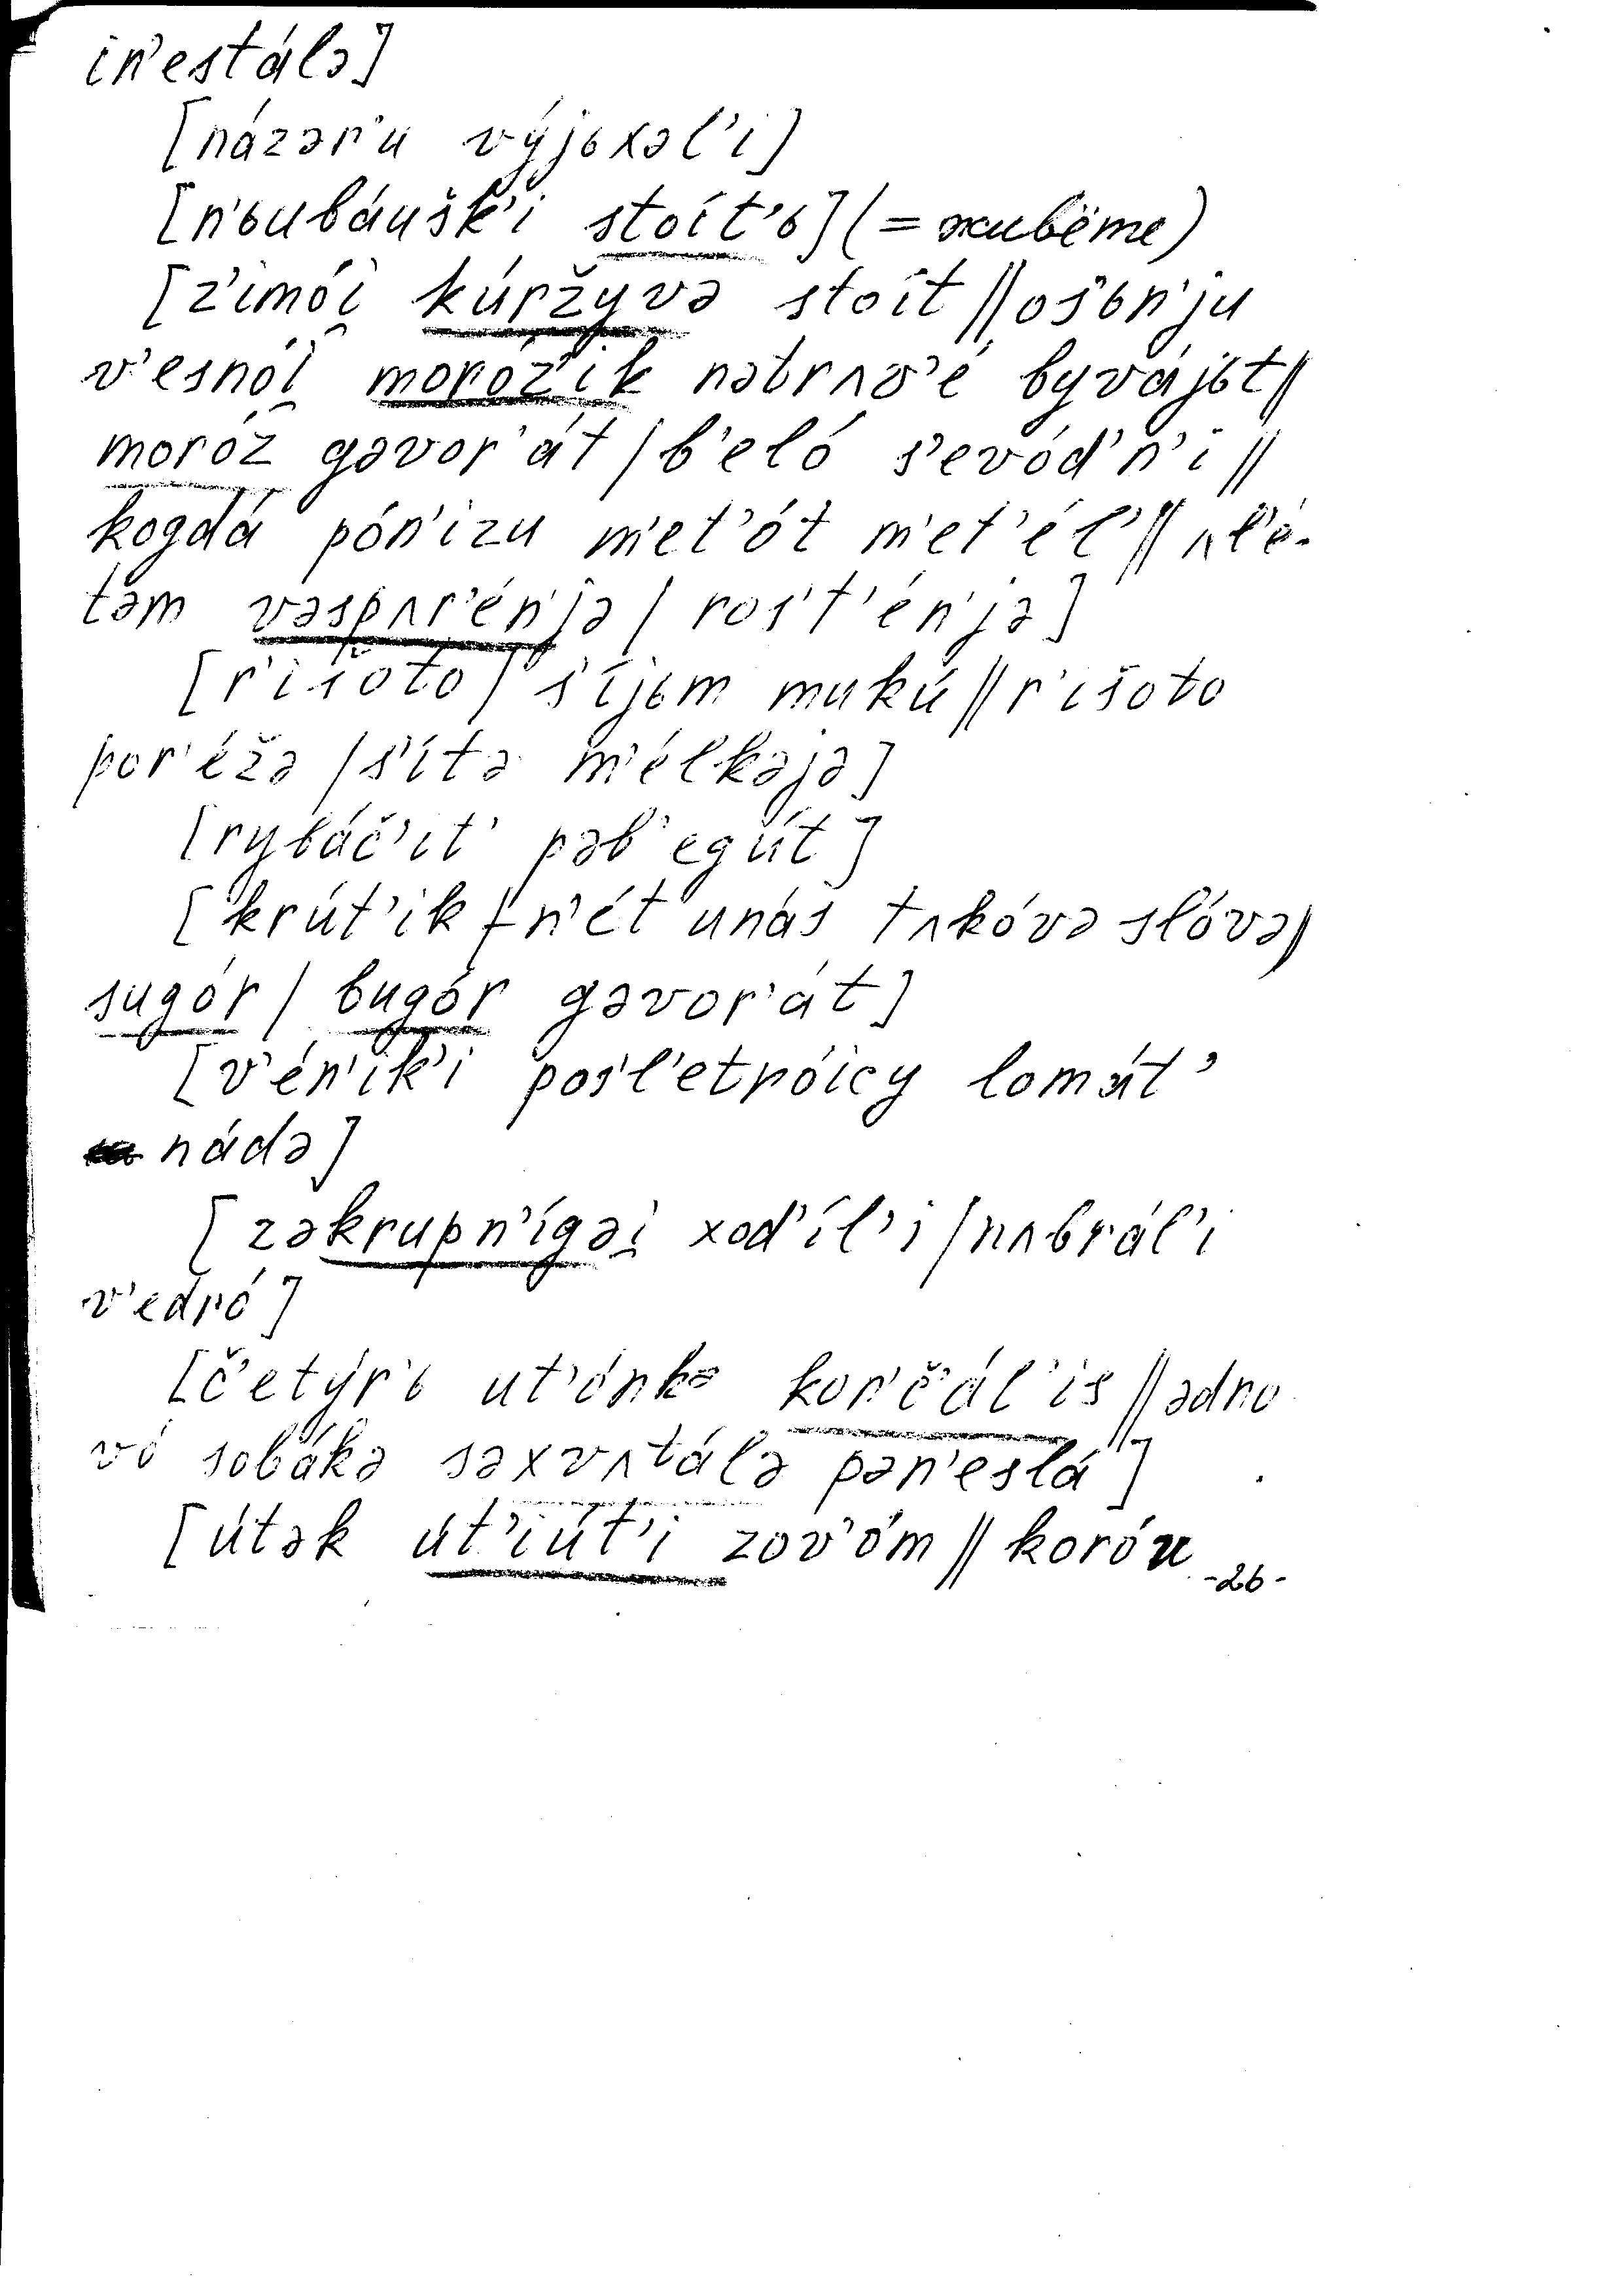 in'estálə]
[názər'u výjьxəl'i]
[n'ьubáušk'i stoít'ь] (= живёте)
[z'imói̯ kúržyvə stoít || os'ьn'ju
v'esnói̯ moróz'ik nətrʌv'é byvájьt ||
moróz gəvor'át / b'eló s'evód'n'i ||
kogdá pón'izu m'et'ót m'et'él' || ʌl'é-
təm vəspʌr'én'jə / ros't'én'jə]
[r'išoto / s'íjьm mukú || r'išoto
por'éžə / s'ítə m'élkəjə]
[rybáč'it' pəb'egút]
[krút'ik / n'ét unás tʌkóvə slóvə ||
sugór / bugór gəvor'át]
[v'én'ik'i pos'l'etróicy lomát'
nádə]
[zəkrupn'ígəi̯ xod'íl'i / nʌbrál'i
v'edró]
[č'etýr'ь ut'ónkə kon'č'ál'is || ədno
vó sobákə səxvʌtálə pən'eslá]
[útək út'iút'i zov'óm || koróv
-26-